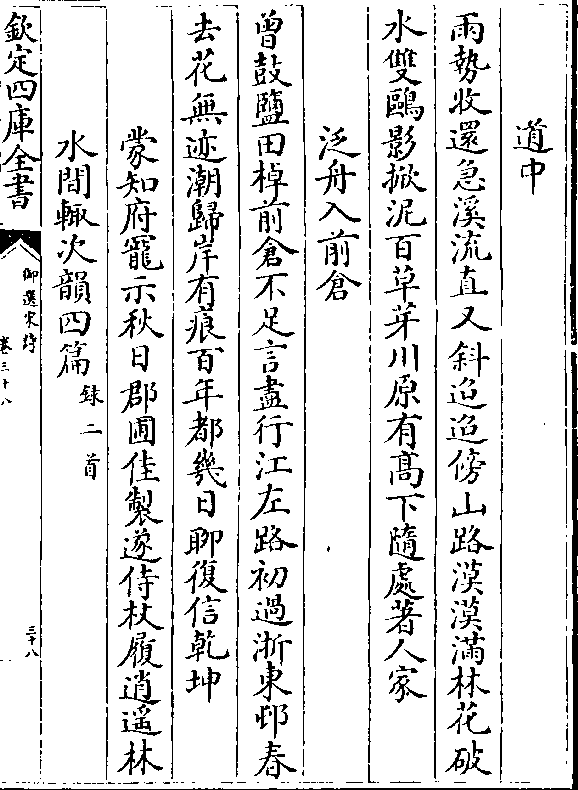 道中
雨勢收還急溪流直又斜迢迢傍山路漠漠滿林花破
水雙鷗影掀泥百草芽川原有高下隨處著人家
泛舟入前倉
曾鼓鹽田棹前倉不足言盡行江左路初過浙東邨春
去花無迹潮歸岸有痕百年都幾日聊復信乾坤
蒙知府寵示秋日郡圃佳製遂侍杖履逍遥林
水間輙次韻四篇 錄二首
欽定四庫全書
御選宋詩
卷三十八
三十八